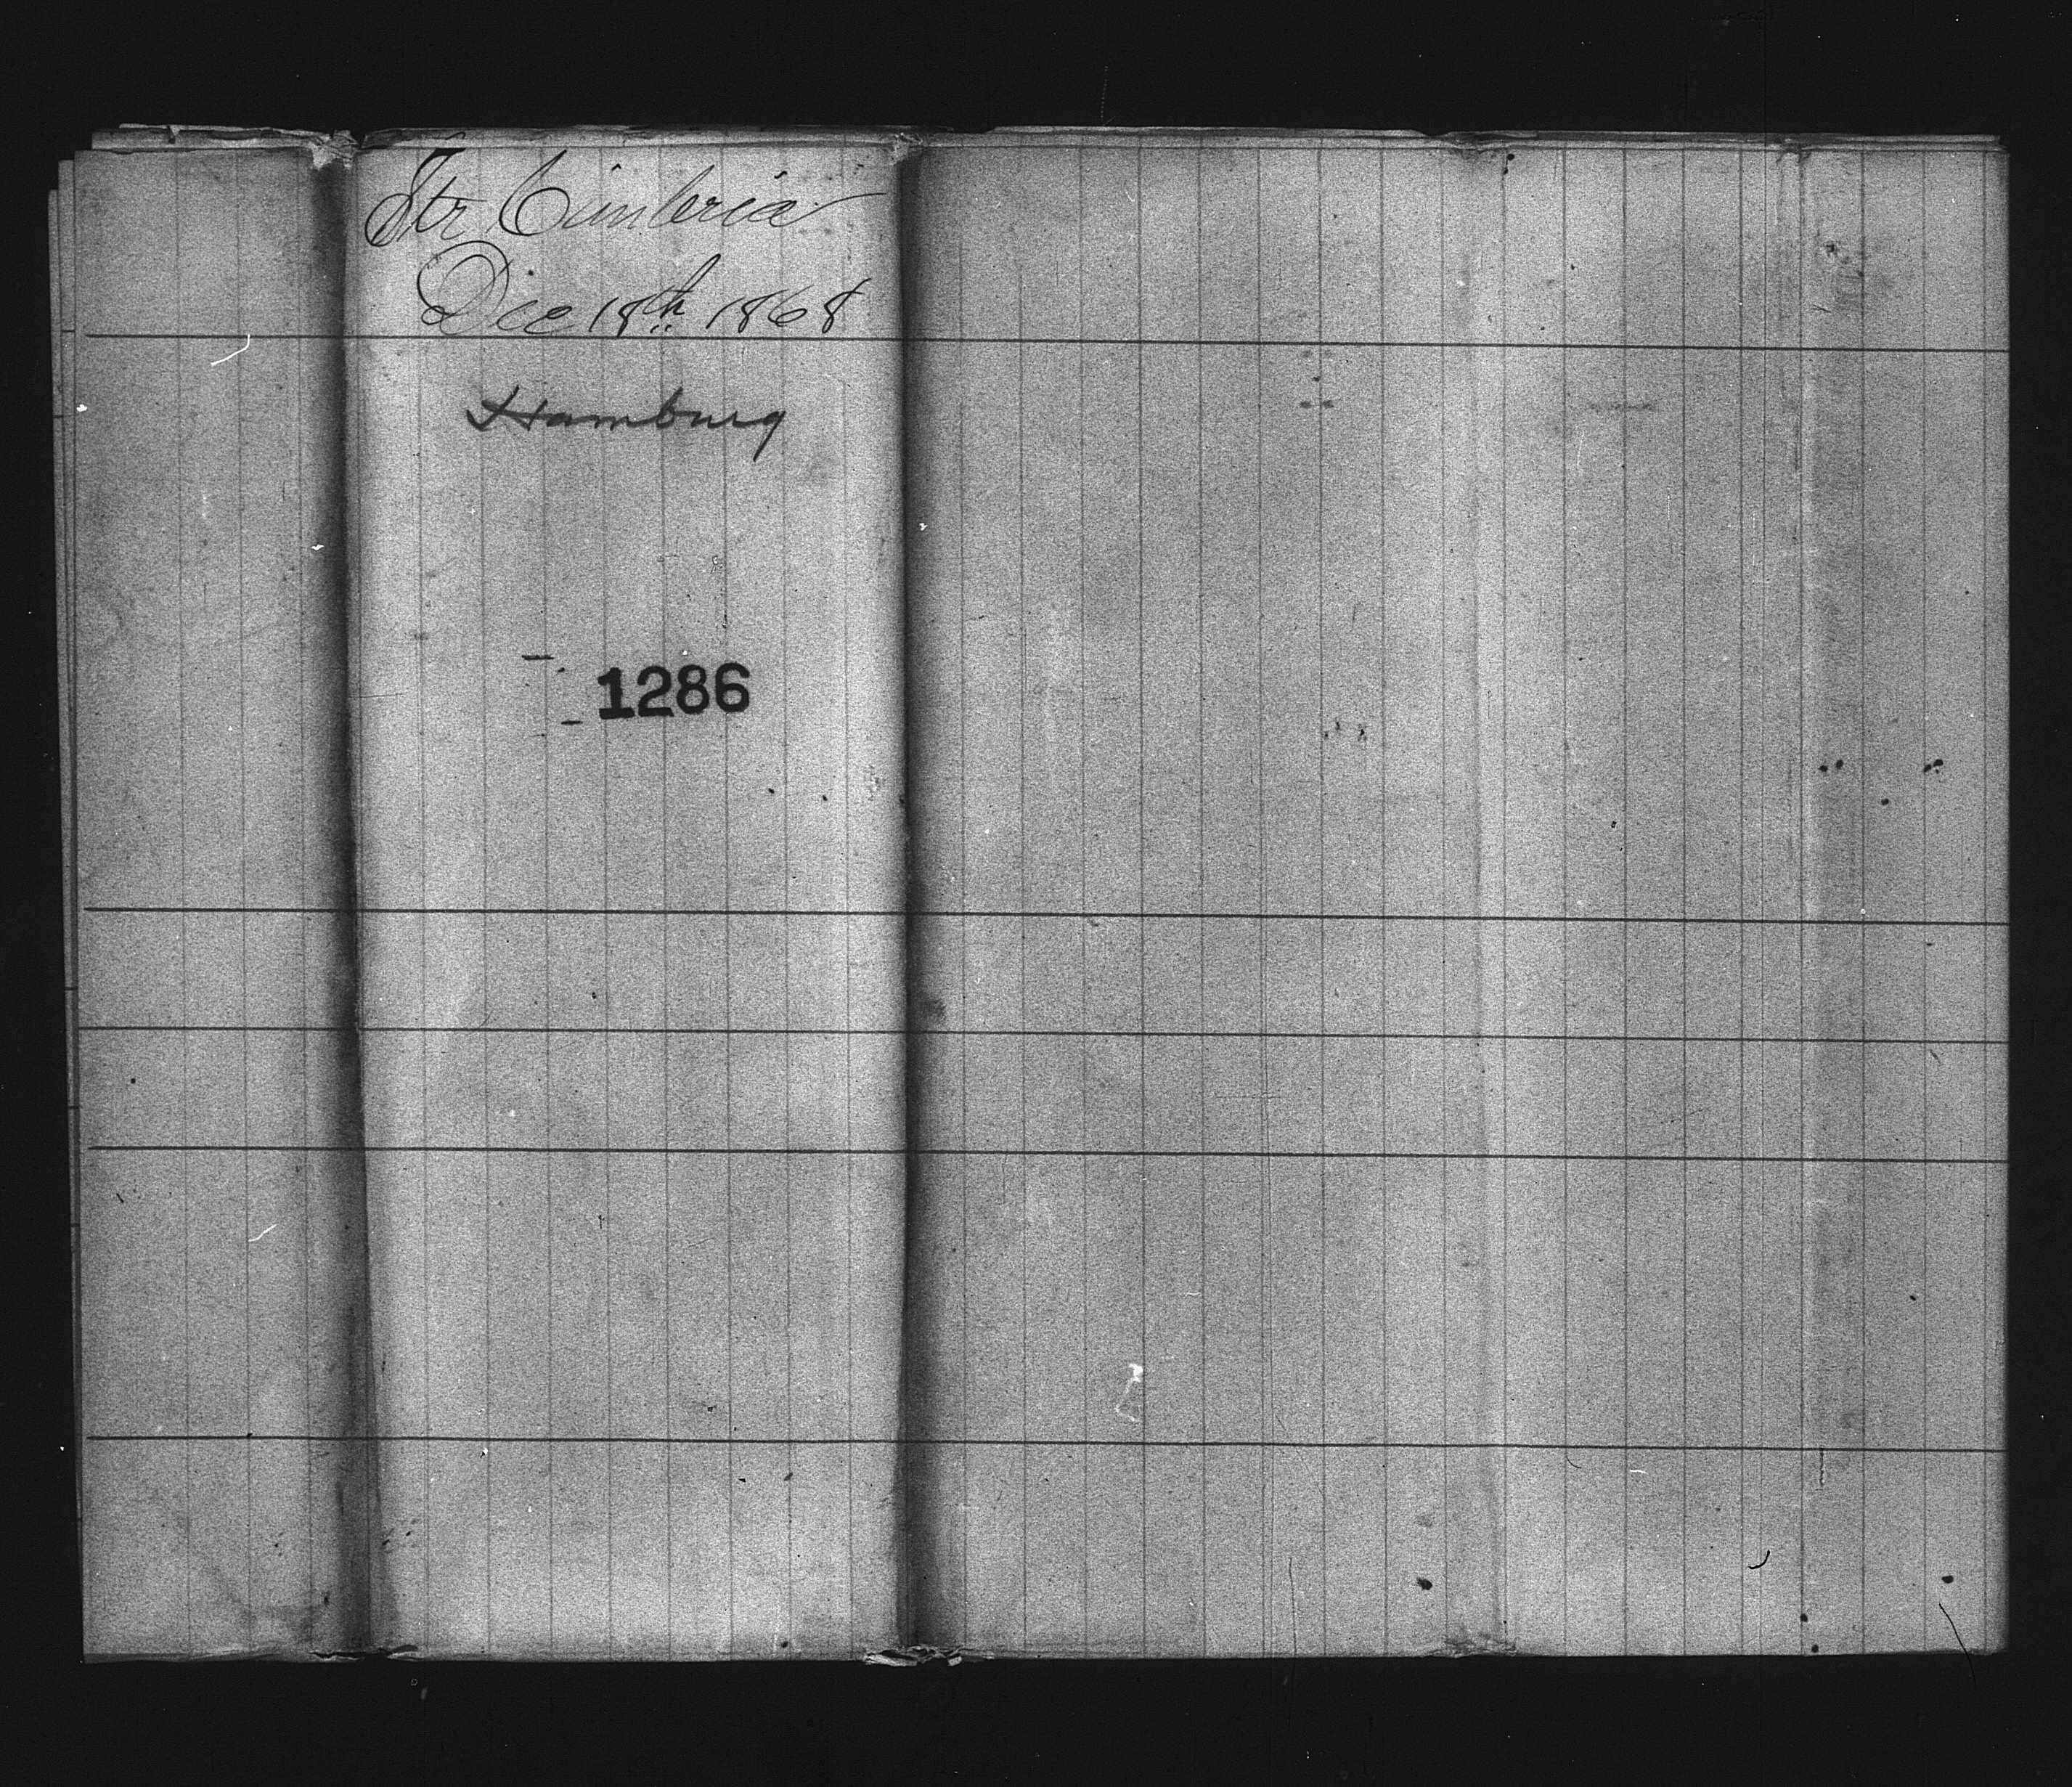 Str Cimbria
Dec 18th 1868
Hamburg
1286